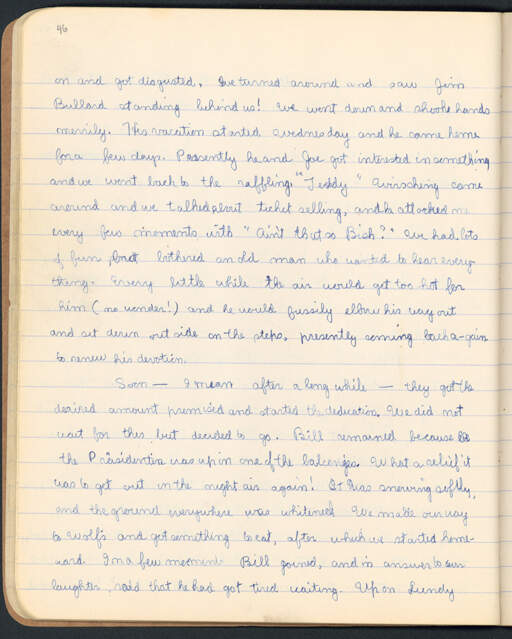 46
on and got disgusted. We turned around and saw Jim
Bullard standing behind us! We went down and shook hands
merrily. His vacation started Wednesday and he came home
for a few days. Presently he and Joe got interested in something
and we went back to the raffling. "Teddy" Wirsching came
around and we talked about ticket selling, and he attacked me
every few moments with "Ain't that so Bish?" We had lots
of fun, but bothered an old man who wanted to hear every-
thing. Every little while the air would get too hot for
him (no wonder!) and he would fussily elbow his way out
and sit down outside on the steps, presently coming back a-gain
to renew his devotion.
Soon — I mean after a long while — they got the
desired amount promised and started the dedication. We did not
wait for this but decided to go. Bill remained because
the Presidentia was up in one of the balconies. What a relief it
was to get out in the night air again! It was snowing softly,
and the ground everywhere was whitened. We made our way
to Wolf's and got something to eat, after which we started home-
ward. In a few moments Bill joined, and in answer to our
laughter, said that he had got tired waiting. Upon Lundy